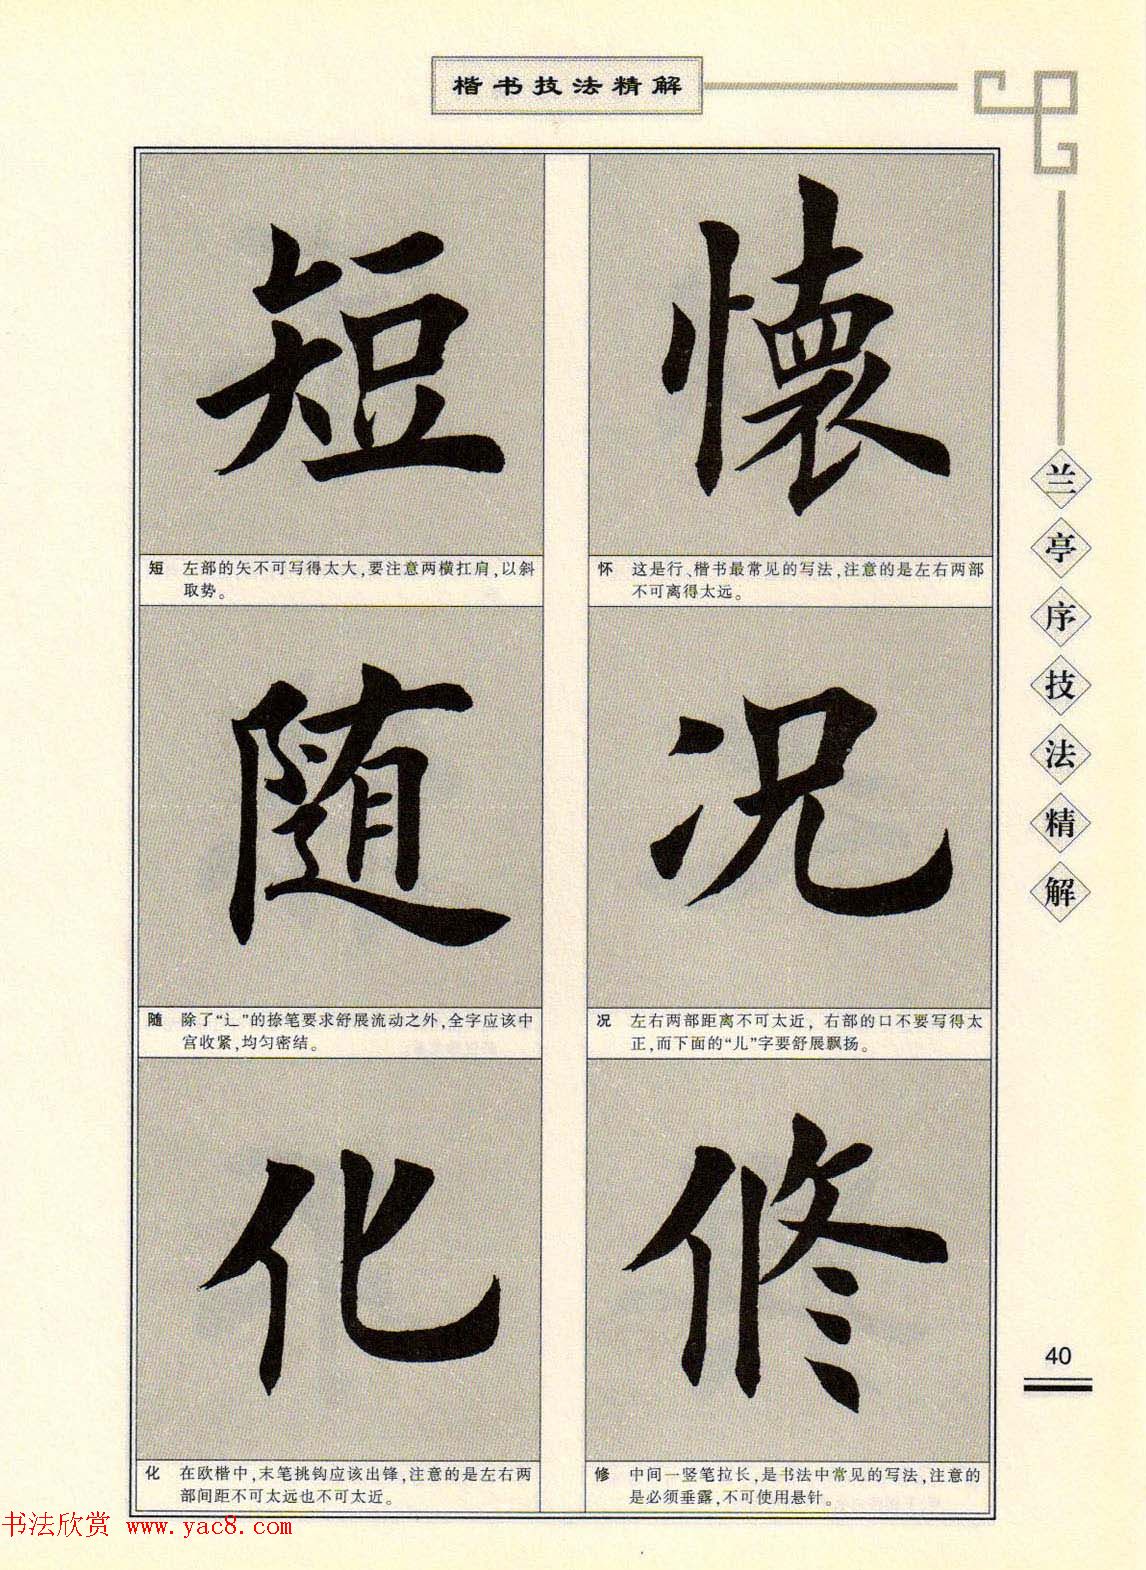 楷书技法精解
短
懷
短 左部的矢不可写得太大,要注意两横扛肩,以斜
取势。
怀 这是行、楷书最常见的写法,注意的是左右两部
不可离得太远。
随
况
随 除了“辶”的捺笔要求舒展流动之外,全字应该中
宫收紧,均匀密结。
况 左右两部距离不可太近, 右部的口不要写得太
正,而下面的“儿”字要舒展飘扬。
化
修
化 在欧楷中,末笔挑钩应该出锋,注意的是左右两
部间距不可太远也不可太近。
修 中间一竖笔拉长,是书法中常见的写法,注意的
是必须垂露,不可使用悬针。
兰亭序技法精解
40
书法欣赏 www.yac8.com